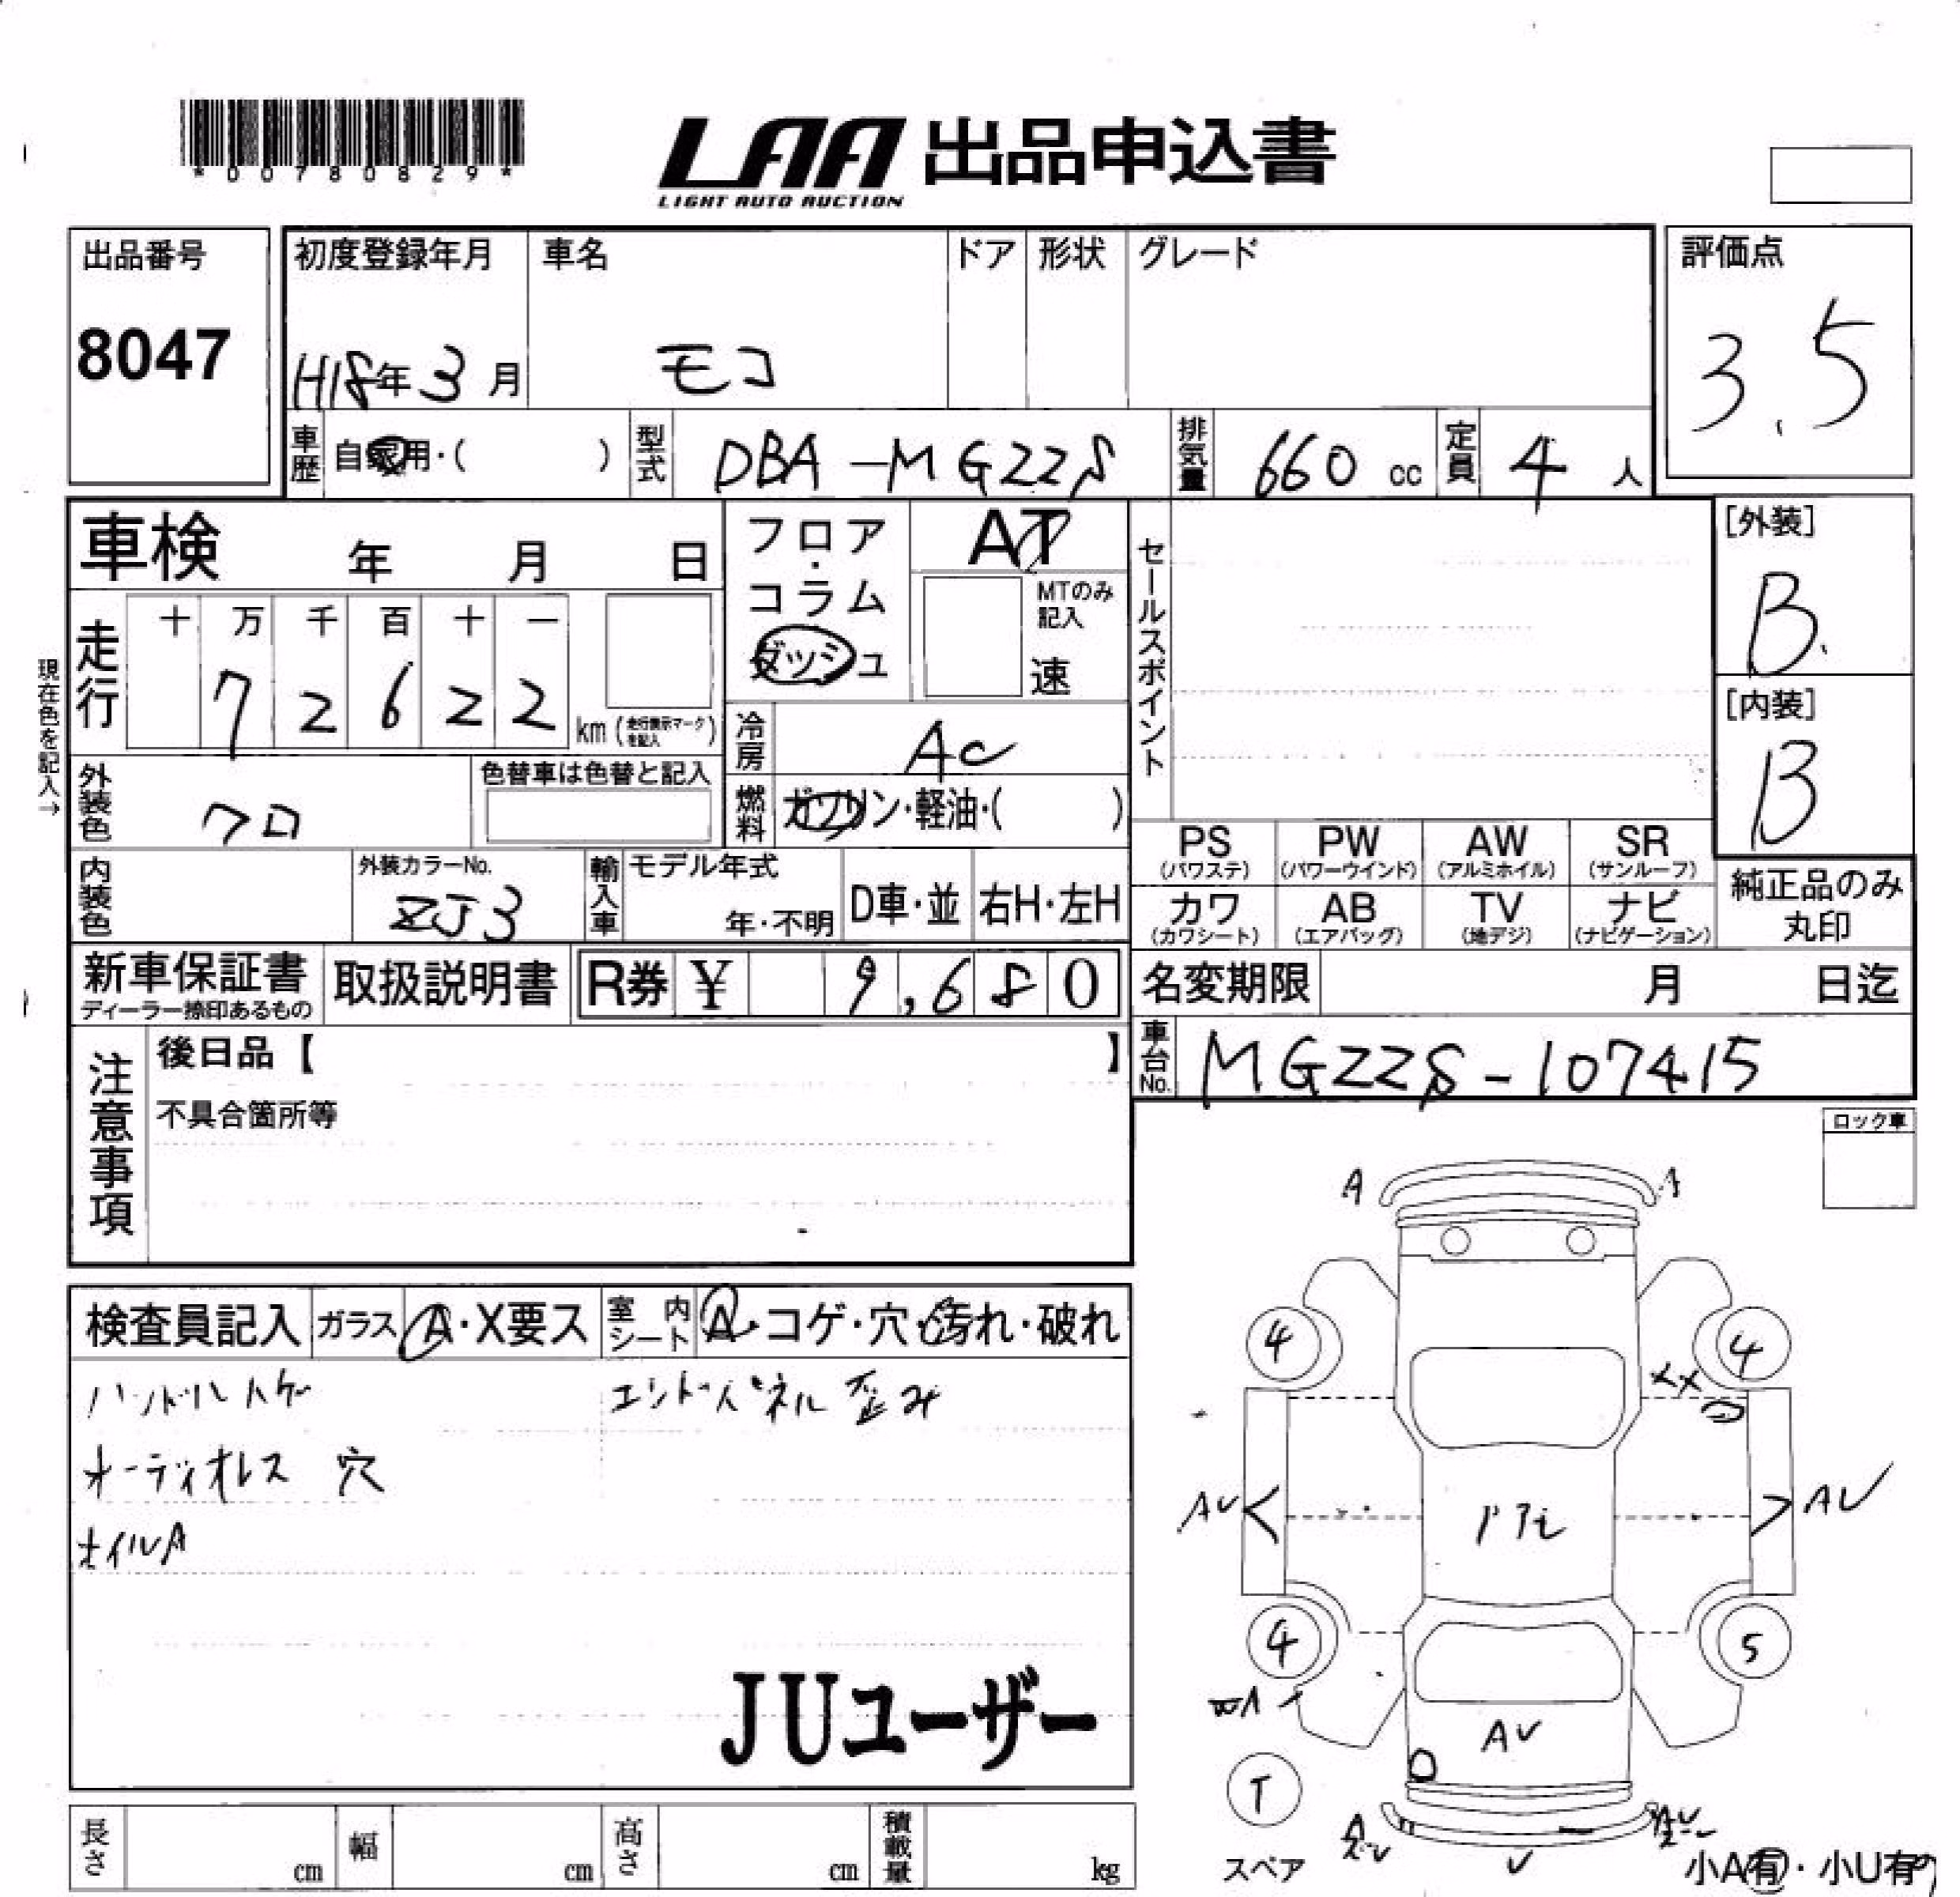 *00780829*
LAA 出品申込書
LIGHT AUTO AUCTION
出品番号
8047
初度登録年月 車名 ドア 形状 グレード
H18年3月 モコ
評価点
3.5
車歴 自家用・( ) 型式 DBA-MG22S 排気量 660 cc 定員 4 人
車検 年 月 日
フロア・コラム ダッシュ
AT
MTのみ記入
速
セールスポイント
[外装]
B
[内装]
B
現在色を記入→
走行 十 万 千 百 十 一
7 2 6 2 2 km (走行表示マークを記入)
冷房 AC
外装色 クロ
色替車は色替と記入
燃料 ガソリン・軽油・( )
PS (パワステ) PW (パワーウインド) AW (アルミホイル) SR (サンルーフ)
カワ (カワシート) AB (エアバッグ) TV (地デジ) ナビ (ナビゲーション)
純正品のみ丸印
内装色 外装カラーNo. ZJ3
輸入車 モデル年式 年・不明 D車・並 右H・左H
新車保証書 ディーラー捺印あるもの 取扱説明書 R券 ¥ 9,680
名変期限 月 日迄
車台No. MG22S-107415
注意事項
後日品【 】
不具合箇所等
ロック車
検査員記入 ガラス A・X要ス 室内シート A・コゲ・穴・汚れ・破れ
ハンドルハゲ エンドパネル歪み
オーディオレス 穴
オイルA
JUユーザー
A A
4 4
XX
AV AV
4 5
AV
T
スペア
V
小A有・小U有
長さ cm 幅 cm 高さ cm 積載量 kg